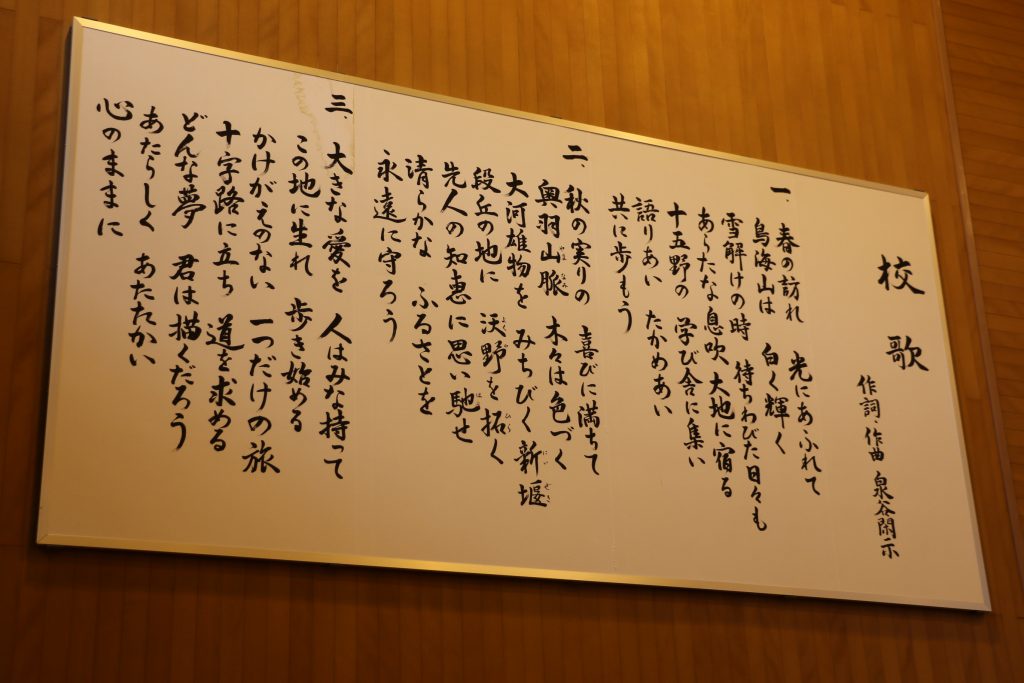 校歌
作詞・作曲 泉谷閑示
一、春の訪れ 光にあふれて
鳥海山は 白く輝く
雪解けの時 待ちわびた日々も
あらたな息吹 大地に宿る
十五野の 学び舎に集い
語りあい たかめあい
共に歩もう
二、秋の実りの 喜びに満ちて
奥羽山脈 木々は色づく
やまなみ
大河雄物を みちびく新堰
にいぜき
段丘の地に 沃野を拓く
よくや ひら
先人の知恵に思い馳せ
は
清らかな ふるさとを
永遠に守ろう
三、大きな愛を 人はみな持って
この地に生れ 歩き始める
かけがえのない 一つだけの旅
十字路に立ち 道を求める
どんな夢 君は描くだろう
あたらしく あたたかい
心のままに